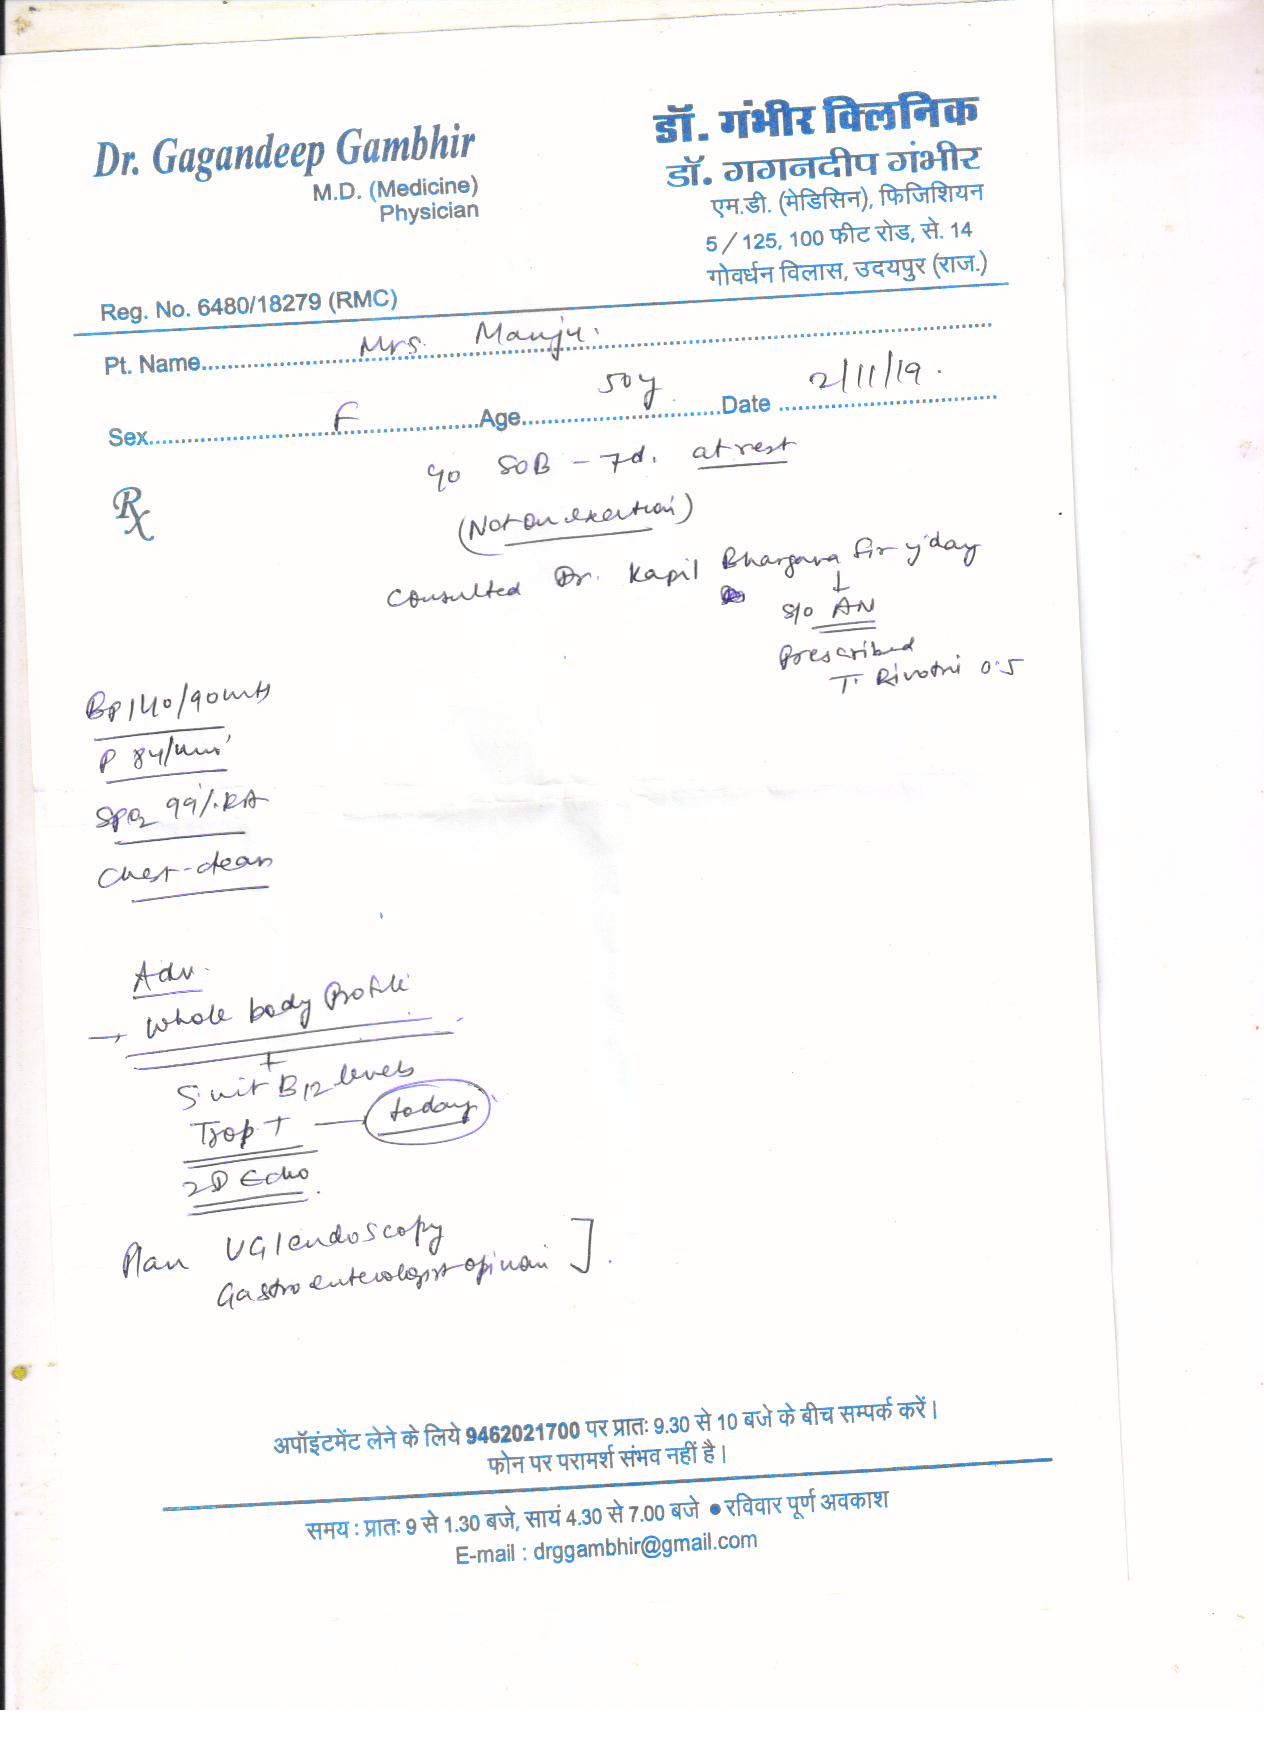 Dr. Gagandeep Gambhir
M.D. (Medicine)
Physician
Reg. No. 6480/18279 (RMC)
डॉ. गंभीर क्लिनिक
डॉ. गगनदीप गंभीर
एम.डी. (मेडिसिन), फिजिशियन
5 / 125, 100 फीट रोड, से. 14
गोवर्धन विलास, उदयपुर (राज.)
Pt. Name Mrs. Manju.
Sex F Age 50y Date 2/11/19.
Rx
c/o SOB - 7d. at rest
(Not on exertion)
Consulted Dr. Kapil Bhargava Sir y'day
↓
S/o AN
Prescribed
T. Rivotri 0.5
BP 140/90
P 84/min
SPO2 99%.RA
Chest-clear
Adv.
→ Whole body Profile
+
S. vit B12 levels
Trop T — today
2D Echo
Plan UGI endoscopy
Gastroenterologist opinion ].
अपॉइंटमेंट लेने के लिये 9462021700 पर प्रातः 9.30 से 10 बजे के बीच सम्पर्क करें।
फोन पर परामर्श संभव नहीं है।
समय : प्रातः 9 से 1.30 बजे, सायं 4.30 से 7.00 बजे ● रविवार पूर्ण अवकाश
E-mail : drggambhir@gmail.com